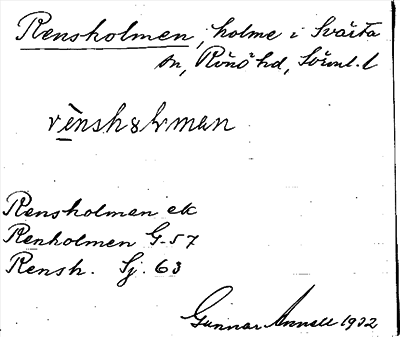 Rensholmen, holme i Svärta
sn, Rönö hd, Sörml. l
Rensholmen ek
Renholmen G-57
Rensh. Sj. 63
Gunnar 1932